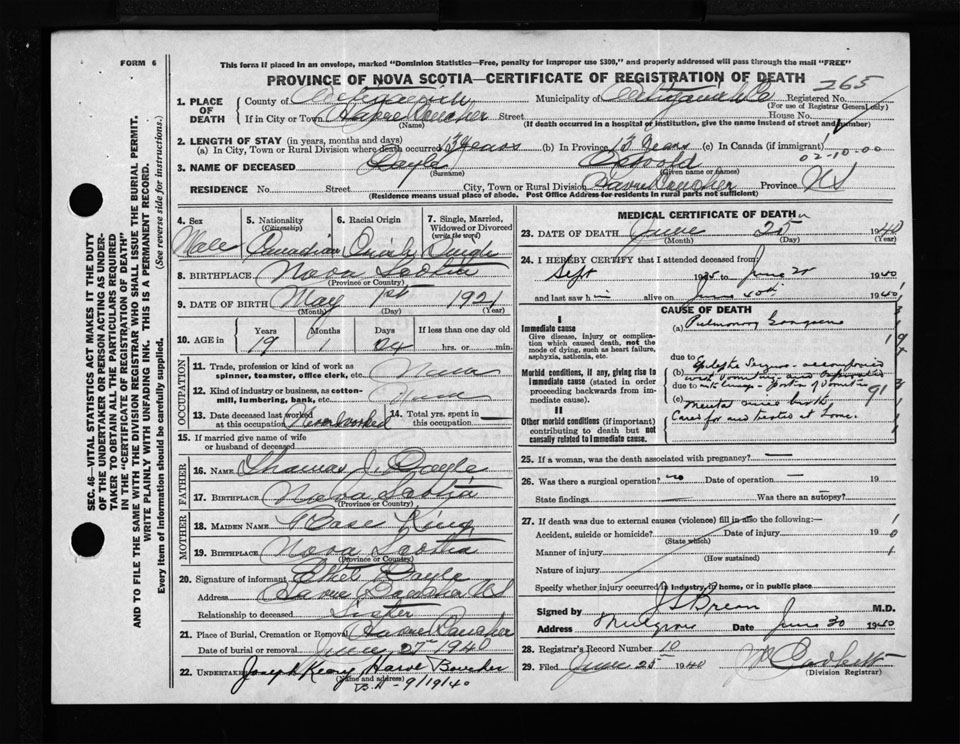 FORM 6
This form if placed in an envelope, marked "Dominion Statistics—Free, penalty for improper use $300," and properly addressed will pass through the mail "FREE"
PROVINCE OF NOVA SCOTIA—CERTIFICATE OF REGISTRATION OF DEATH
265
1. PLACE OF DEATH
County of Antigonish Municipality of Antigonish Co Registered No.
(For use of Registrar General only)
If in City or Town Havre Boucher Street House No.
(Name) (If death occurred in a hospital or institution, give the name instead of street and number)
2. LENGTH OF STAY (in years, months and days)
(a) In City, Town or Rural Division where death occurred years (b) In Province years (c) In Canada (if immigrant)
02-10-00
3. NAME OF DECEASED
(Surname) (Given name or names)
RESIDENCE No. Street City, Town or Rural Division Havre Boucher Province NS
(Residence means usual place of abode. Post Office Address for residents in rural parts not sufficient)
4. Sex
Male
5. Nationality
(Citizenship)
Canadian
6. Racial Origin
Irish
7. Single, Married, Widowed or Divorced
(write the word)
Single
8. BIRTHPLACE Nova Scotia
(Province or Country)
9. DATE OF BIRTH May 1st 1921
(Month) (Day) (Year)
10. AGE in
Years Months Days If less than one day old
19 1 24 hrs. or min.
OCCUPATION
11. Trade, profession or kind of work as spinner, teamster, office clerk, etc. None
12. Kind of industry or business, as cotton-mill, lumbering, bank, etc. None
13. Date deceased last worked at this occupation Never worked
14. Total yrs. spent in this occupation —
15. If married give name of wife or husband of deceased
FATHER
16. NAME Thomas J. Doyle
17. BIRTHPLACE Nova Scotia
(Province or Country)
MOTHER
18. MAIDEN NAME Rose King
19. BIRTHPLACE Nova Scotia
(Province or Country)
20. Signature of informant Ethel Doyle
Address Havre Boucher NS
Relationship to deceased Sister
21. Place of Burial, Cremation or Removal Havre Boucher
Date of burial or removal June 27th 1940
22. UNDERTAKER Joseph Keary Havre Boucher
(Name and address)
9/19/40
MEDICAL CERTIFICATE OF DEATH
23. DATE OF DEATH June 25 1940
(Month) (Day) (Year)
24. I HEREBY CERTIFY that I attended deceased from
Sept to June 1940
and last saw him alive on June 1940
CAUSE OF DEATH
I
Immediate cause
Give disease, injury or complication which caused death, not the mode of dying, such as heart failure, asphyxia, asthenia, etc.
(a) Pulmonary Gangrene
due to
Morbid conditions, if any, giving rise to immediate cause (stated in order proceeding backwards from immediate).
(b)
due to
(c) Mental since birth
II
Other morbid conditions (if important) contributing to death but not causally related to immediate cause.
Cared for and treated at home.
25. If a woman, was the death associated with pregnancy? —
26. Was there a surgical operation? no Date of operation — 19
State findings Was there an autopsy?
27. If death was due to external causes (violence) fill in also the following:—
Accident, suicide or homicide? Date of injury 19
(State which)
Manner of injury
(How sustained)
Nature of injury
Specify whether injury occurred in industry, in home, or in public place
Signed by M.D.
Address Mulgrave Date June 30 1940
28. Registrar's Record Number 10
29. Filed June 25 1940
(Division Registrar)
SEC. 46—VITAL STATISTICS ACT MAKES IT THE DUTY OF THE UNDERTAKER OR PERSON ACTING AS UNDERTAKER TO OBTAIN ALL THE PARTICULARS REQUIRED IN THE "CERTIFICATE OF REGISTRATION OF DEATH"
AND TO FILE THE SAME WITH THE DIVISION REGISTRAR WHO SHALL ISSUE THE BURIAL PERMIT.
WRITE PLAINLY WITH UNFADING INK. THIS IS A PERMANENT RECORD.
Every item of Information should be carefully supplied. (See reverse side for instructions.)